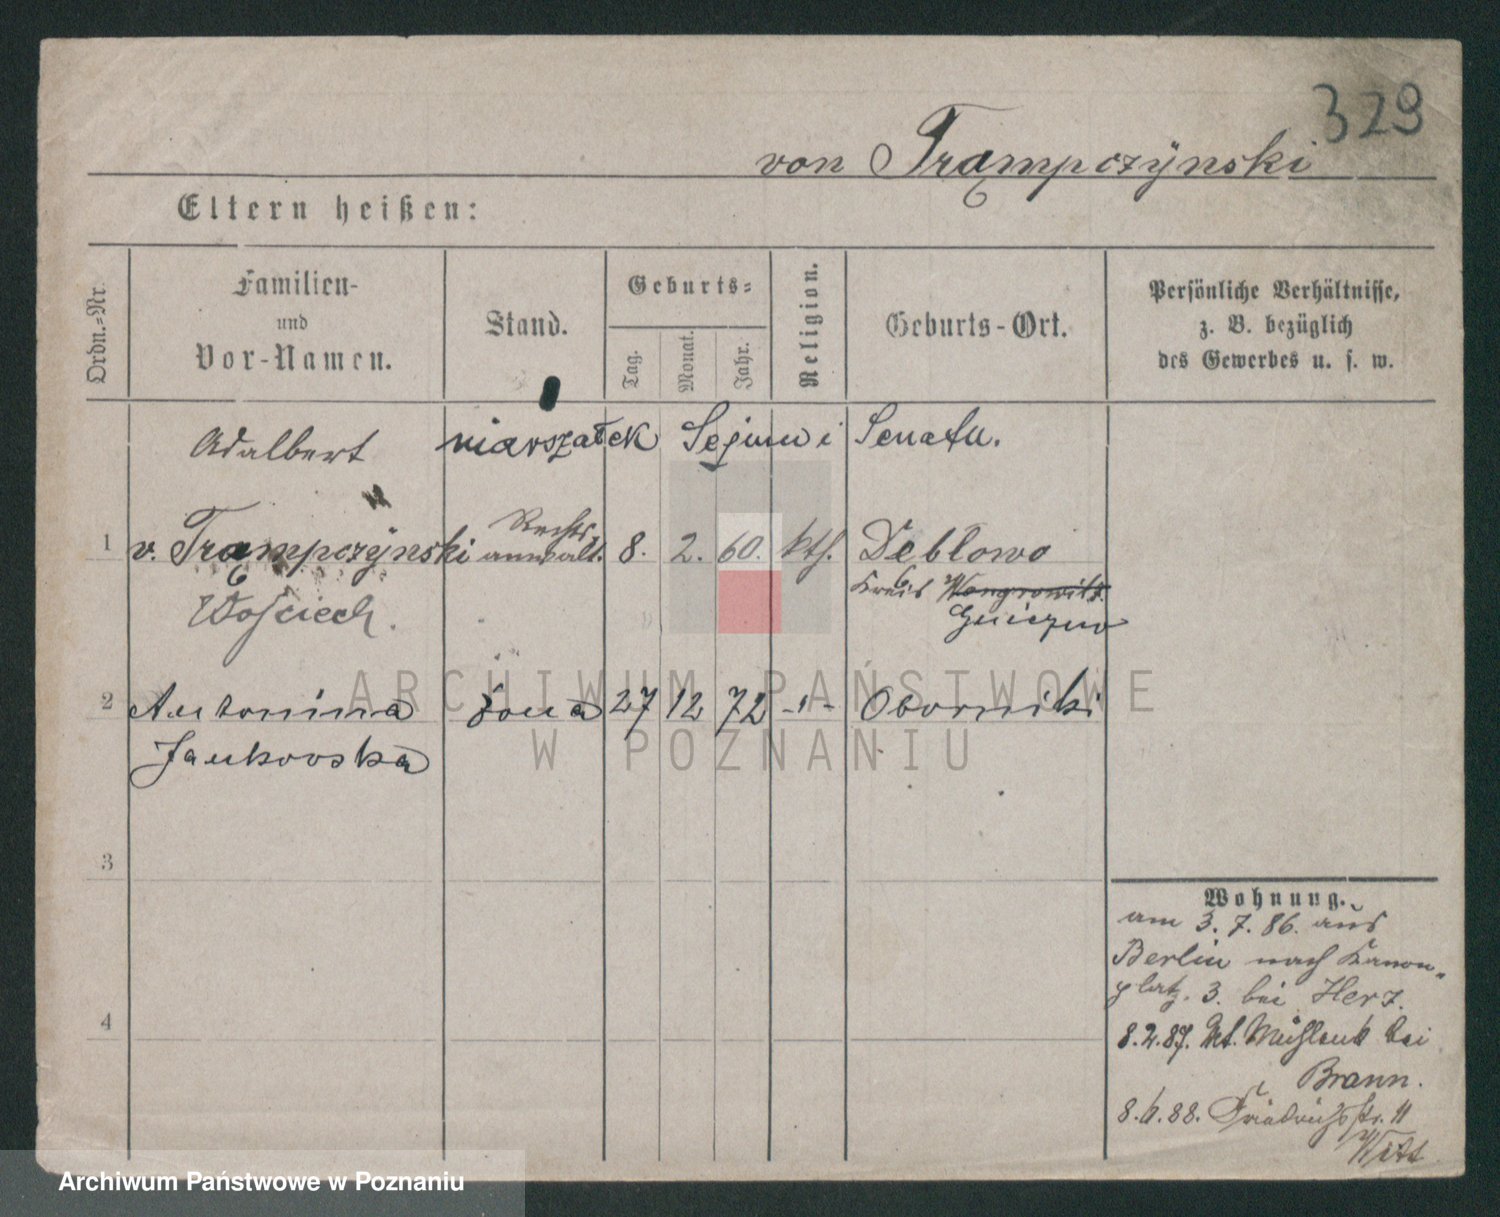 329
von Trąmpczÿnski
Eltern heißen:
Ordn.-Nr.
Familien-
und
Vor-Namen.
Stand.
Geburts-
Tag.
Monat.
Jahr.
Religion.
Geburts-Ort.
Persönliche Verhältnisse,
z. B. bezüglich
des Gewerbes u. s. w.
Adalbert marszałek Sejmu i Senatu.
Rechts
1 v. Trąmpczÿnski anwalt. 8. 2. 60. kth. Deblowo
Kreis Wongrowitz.
Wojciech. Gniezno
2 Antonina żona 27 12 72 -"- Oborniki
Jankowska
3
4
Wohnung.
am 3. 7. 86. aus
Berlin nach Kanon-
platz. 3. bei Herz.
8.2.87. Mühlenst bei
Brann.
8.6.88. Friedrichsstr. 11
Witt
ARCHIWUM PAŃSTWOWE
W POZNANIU
Archiwum Państwowe w Poznaniu